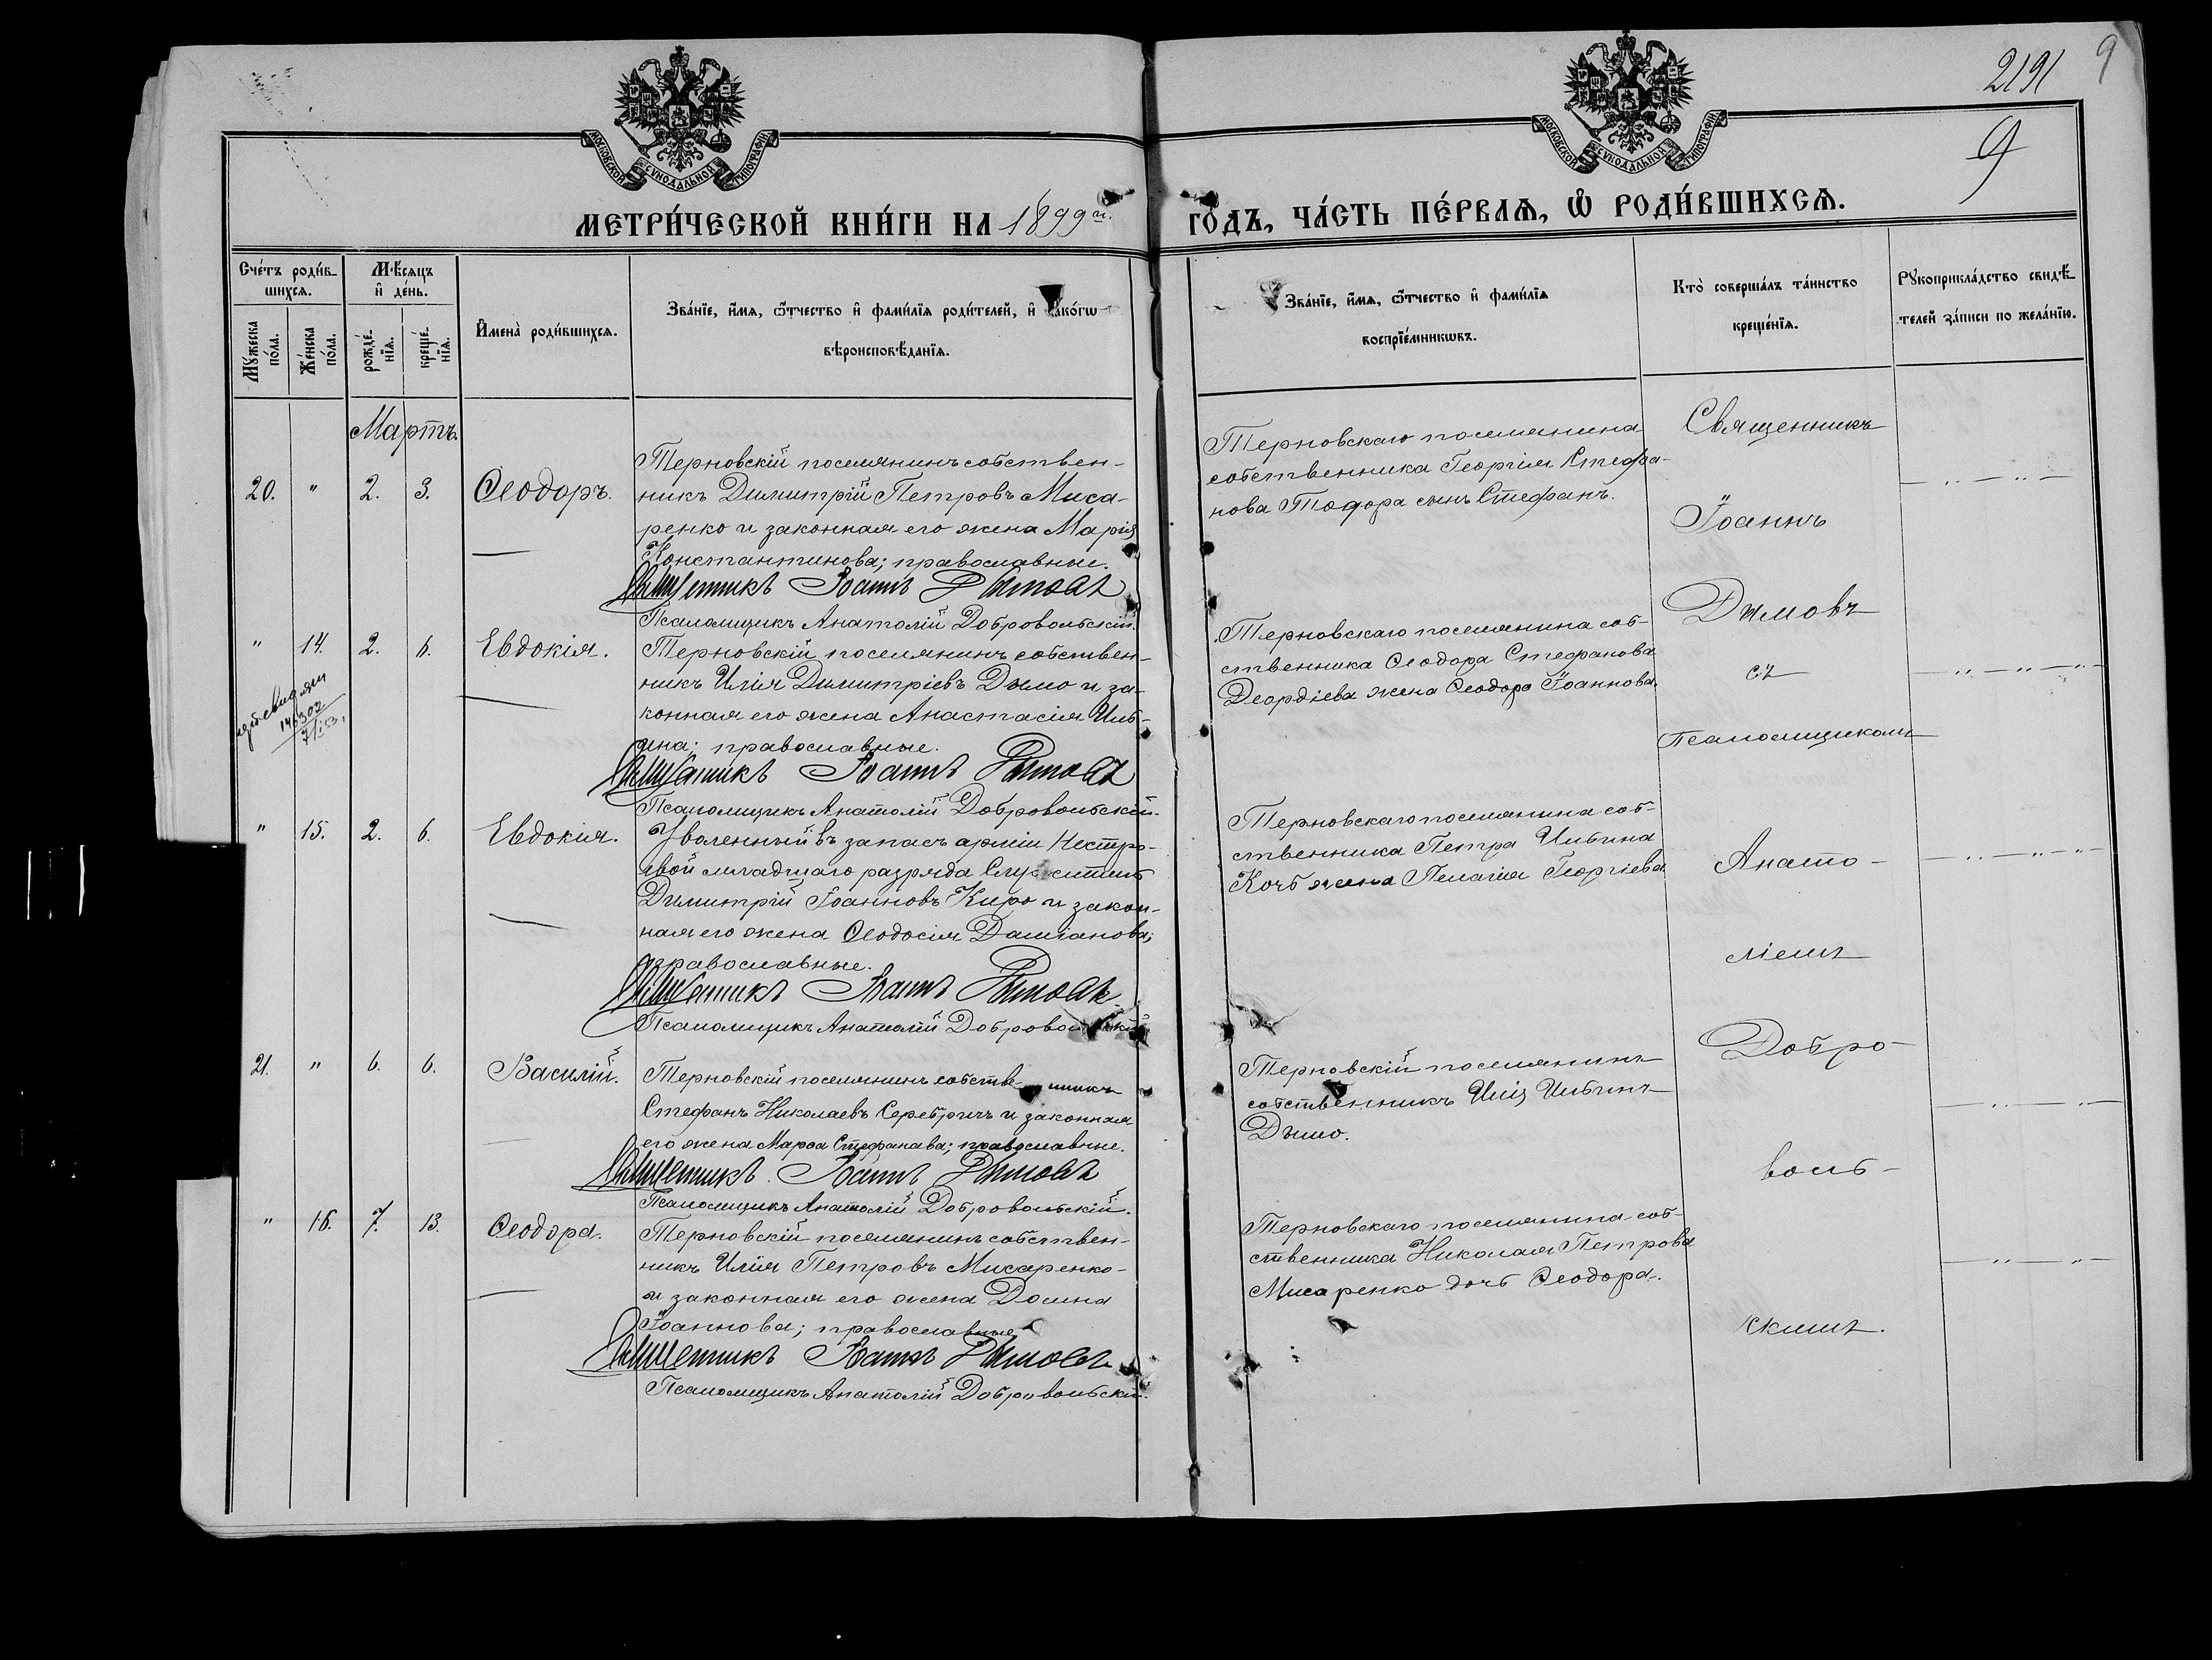 2191 9
9
МОСКОВСКОЙ СѴНОДАЛЬНОЙ ТИПОГРАФІИ
МОСКОВСКОЙ СѴНОДАЛЬНОЙ ТИПОГРАФІИ
МЕТРИ́ЧЕСКОЙ КНИ́ГИ НА 1899й. ГО́ДЪ, ЧА́СТЬ ПЕ́РВАѦ, Ѽ РОДИ́ВШИХСѦ.
Сче́тъ роди́в-
шихсѧ.
Мꙋ́жеска по́ла.
Же́нска по́ла.
Мѣ́сѧцъ
и҆ де́нь.
рожде́нїѧ.
креще́нїѧ.
И҆мена̀ роди́вшихсѧ.
Зва́нїе, и҆́мѧ, ѻ҆́тчество и҆ фами́лїѧ роди́телей, и҆ како́гѡ
вѣроисповѣ́данїѧ.
Зва́нїе, и҆́мѧ, ѻ҆́тчество и҆ фами́лїѧ
воспрїе́мникѡвъ.
Кто̀ соверша́лъ та́инство
креще́нїѧ.
Рꙋкоприкла́дство свидѣ́-
телей за́писи по жела́нїю.
Мартъ.
20. " 2. 3. Ѳеодоръ.
Терновскій поселянинъ собствен-
никъ Димитрій Петровъ Миса-
ренко и законная его жена Марія
Константинова; православные.
Священникъ Іоаннъ Дымовъ
Псаломщикъ Анатолій Добровольскій.
Терновскаго поселянина
собственника Георгія Стефа-
нова Тодора сынъ Стефанъ.
" 14. 2. 6. Евдокія.
Терновскій поселянинъ собствен-
никъ Илія Димитріевъ Дымо и за-
конная его жена Анастасія Иль-
ина; православные.
Священникъ Іоаннъ Дымовъ
Псаломщикъ Анатолій Добровольскій.
Терновскаго поселянина соб-
ственника Ѳеодора Стефанова
Деордіева жена Ѳеодора Іоаннова.
" 15. 2. 6. Евдокія.
Уволенный въ запасъ арміи Нестро-
евой младшаго разряда Служитель
Димитрій Іоанновъ Киро и закон-
ная его жена Ѳеодосія Даміанова;
православные.
Священникъ Іоаннъ Дымовъ
Псаломщикъ Анатолій Добровольскій
Терновскаго поселянина соб-
ственника Петра Ильина
Кочь жена Пелагія Георгіева
21. " 6. 6. Василій.
Терновскій поселянинъ собственникъ
Стефанъ Николаевъ Серебричъ и законная
его жена Марѳа Стефанова; православные.
Священникъ Іоаннъ Дымовъ
Псаломщикъ Анатолій Добровольскій.
Терновскій поселянинъ
собственникъ Илія Ильинъ
Дымо.
" 16. 7. 13. Ѳеодора.
Терновскій поселянинъ собствен-
никъ Илія Петровъ Мисаренко
и законная его жена Домна
Іоаннова; православные
Священникъ Іоаннъ Дымовъ
Псаломщикъ Анатолій Добровольскій.
Терновскаго поселянина соб-
ственника Николая Петрова
Мисаренко дочь Ѳеодора.
Священникъ
Іоаннъ
Дымовъ
съ
псаломщикомъ
Анато-
ліемъ
Добро-
воль-
скимъ.